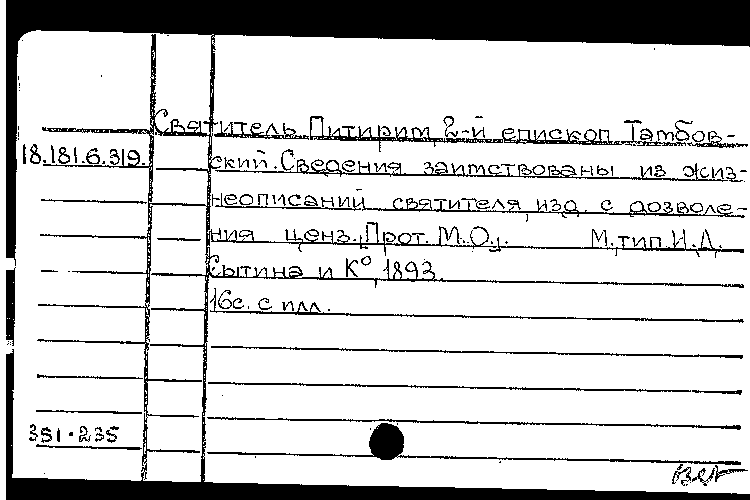 Святитель Питирим, 2-й епископ Тамбов-
18.181.6.319. ский. Сведения заимствованы из жиз-
неописаний святителя, изд. с дозволе-
ния ценз. [Прот. М.О.]. М., тип. И.Д.
Сытина и К°, 1893.
16с. с илл.
351.235